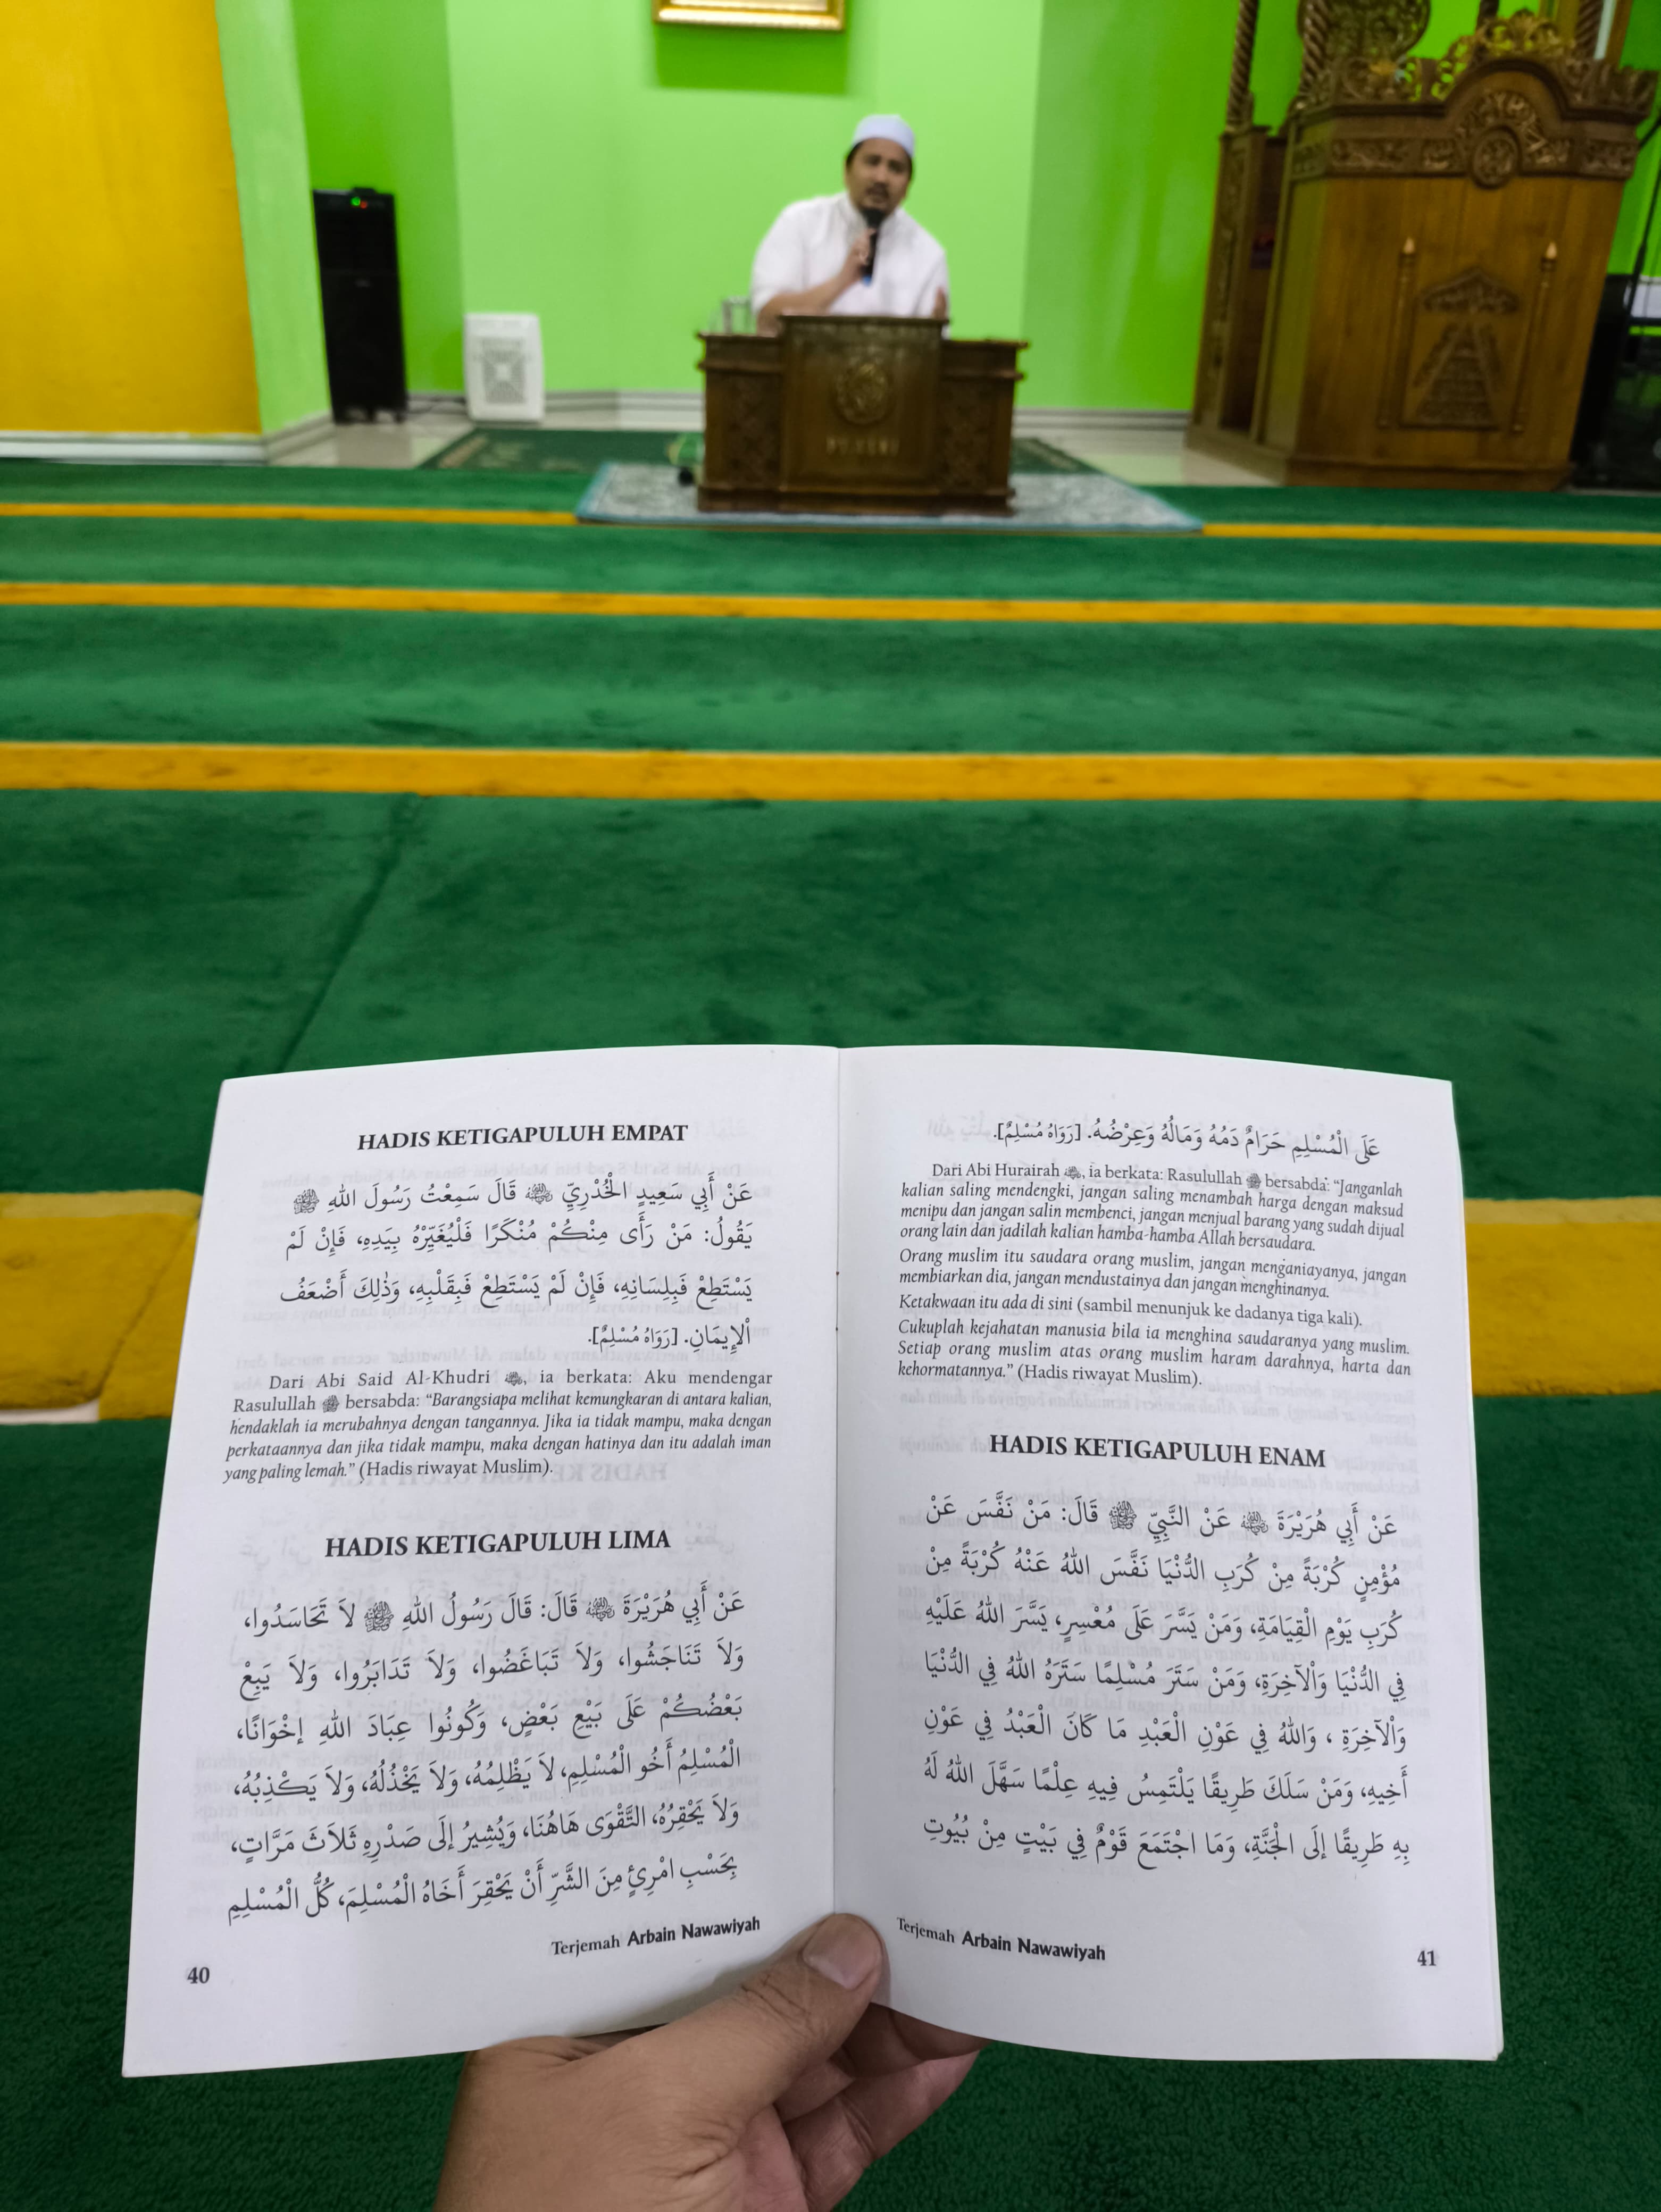 HADIS KETIGAPULUH EMPAT
عَنْ أَبِي سَعِيدٍ الْخُدْرِيِّ ﵁ قَالَ سَمِعْتُ رَسُولَ اللهِ ﷺ
يَقُولُ: مَنْ رَأَى مِنْكُمْ مُنْكَرًا فَلْيُغَيِّرْهُ بِيَدِهِ، فَإِنْ لَمْ
يَسْتَطِعْ فَبِلِسَانِهِ، فَإِنْ لَمْ يَسْتَطِعْ فَبِقَلْبِهِ، وَذٰلِكَ أَضْعَفُ
اْلإِيمَانِ. [رَوَاهُ مُسْلِمٌ].
Dari Abi Said Al-Khudri ﵁, ia berkata: Aku mendengar
Rasulullah ﷺ bersabda: “Barangsiapa melihat kemungkaran di antara kalian,
hendaklah ia merubahnya dengan tangannya. Jika ia tidak mampu, maka dengan
perkataannya dan jika tidak mampu, maka dengan hatinya dan itu adalah iman
yang paling lemah.” (Hadis riwayat Muslim).
HADIS KETIGAPULUH LIMA
عَنْ أَبِي هُرَيْرَةَ ﵁ قَالَ: قَالَ رَسُولُ اللهِ ﷺ لاَ تَحَاسَدُوا،
وَلاَ تَنَاجَشُوا، وَلاَ تَبَاغَضُوا، وَلاَ تَدَابَرُوا، وَلاَ يَبِعْ
بَعْضُكُمْ عَلَى بَيْعِ بَعْضٍ، وَكُونُوا عِبَادَ اللهِ إِخْوَانًا،
الْمُسْلِمُ أَخُو الْمُسْلِمِ، لاَ يَظْلِمُهُ، وَلاَ يَخْذُلُهُ، وَلاَ يَكْذِبُهُ،
وَلاَ يَحْقِرُهُ، التَّقْوَى هَاهُنَا، وَيُشِيرُ إِلَى صَدْرِهِ ثَلاَثَ مَرَّاتٍ،
بِحَسْبِ امْرِئٍ مِنَ الشَّرِّ أَنْ يَحْقِرَ أَخَاهُ الْمُسْلِمَ، كُلُّ الْمُسْلِمِ
Terjemah Arbain Nawawiyah
40
عَلَى الْمُسْلِمِ حَرَامٌ دَمُهُ وَمَالُهُ وَعِرْضُهُ. [رَوَاهُ مُسْلِمٌ].
Dari Abi Hurairah ﵁, ia berkata: Rasulullah ﷺ bersabda: “Janganlah
kalian saling mendengki, jangan saling menambah harga dengan maksud
menipu dan jangan salin membenci, jangan menjual barang yang sudah dijual
orang lain dan jadilah kalian hamba-hamba Allah bersaudara.
Orang muslim itu saudara orang muslim, jangan menganiayanya, jangan
membiarkan dia, jangan mendustainya dan jangan menghinanya.
Ketakwaan itu ada di sini (sambil menunjuk ke dadanya tiga kali).
Cukuplah kejahatan manusia bila ia menghina saudaranya yang muslim.
Setiap orang muslim atas orang muslim haram darahnya, harta dan
kehormatannya.” (Hadis riwayat Muslim).
HADIS KETIGAPULUH ENAM
عَنْ أَبِي هُرَيْرَةَ ﵁ عَنْ النَّبِيِّ ﷺ قَالَ: مَنْ نَفَّسَ عَنْ
مُؤْمِنٍ كُرْبَةً مِنْ كُرَبِ الدُّنْيَا نَفَّسَ اللهُ عَنْهُ كُرْبَةً مِنْ
كُرَبِ يَوْمِ الْقِيَامَةِ، وَمَنْ يَسَّرَ عَلَى مُعْسِرٍ، يَسَّرَ اللهُ عَلَيْهِ
فِي الدُّنْيَا وَاْلآخِرَةِ، وَمَنْ سَتَرَ مُسْلِمًا سَتَرَهُ اللهُ فِي الدُّنْيَا
وَاْلآخِرَةِ ، وَاللهُ فِي عَوْنِ الْعَبْدِ مَا كَانَ الْعَبْدُ فِي عَوْنِ
أَخِيهِ، وَمَنْ سَلَكَ طَرِيقًا يَلْتَمِسُ فِيهِ عِلْمًا سَهَّلَ اللهُ لَهُ
بِهِ طَرِيقًا إِلَى الْجَنَّةِ، وَمَا اجْتَمَعَ قَوْمٌ فِي بَيْتٍ مِنْ بُيُوتِ
Terjemah Arbain Nawawiyah
41